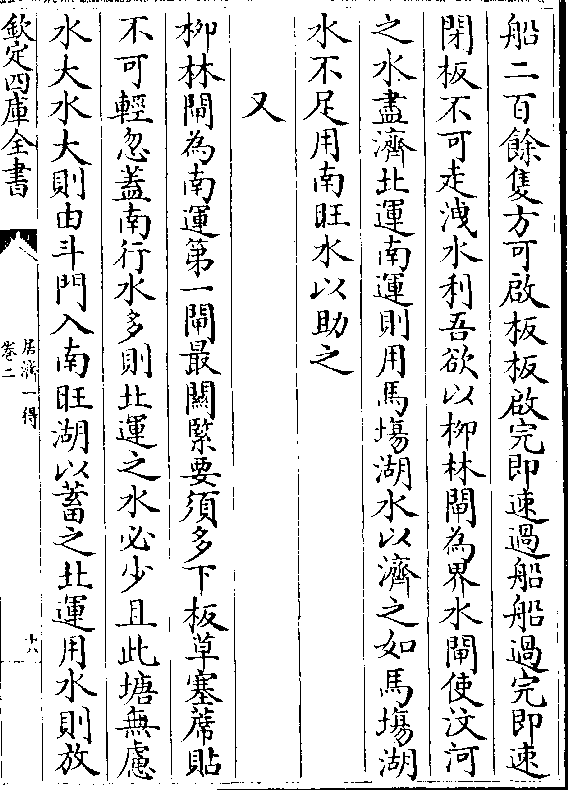 船二百餘隻方可啟板板啟完即速過船船過完即速
閉板不可走洩水利吾欲以柳林閘為界水閘使汶河
之水盡濟北運南運則用馬塲湖水以濟之如馬塲湖
水不足用南旺水以助之
又
柳林閘為南運第一閘最關緊要須多下板草塞蓆貼
不可輕忽蓋南行水多則北運之水必少且此塘無慮
水大水大則由斗門入南旺湖以蓄之北運用水則放
欽定四庫全書
居濟一得
卷二
十八